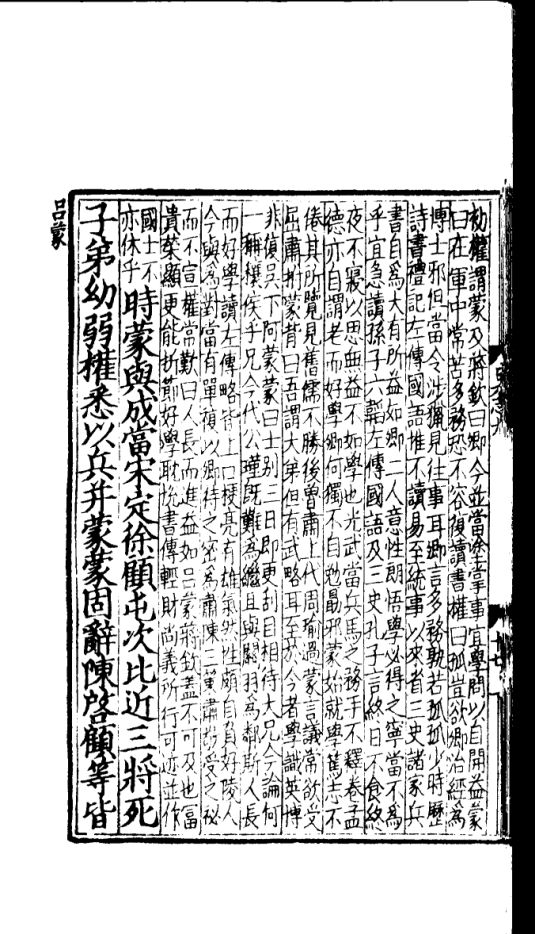 初權謂蒙及蔣欽曰卿今並當塗掌事宜學問以自開益蒙
曰在軍中常苦多務恐不容復讀書權曰孤豈欲卿治經為
博士邪但當令涉獵見往事耳卿言多務孰若孤孤少時歷
詩書禮記左傳國語惟不讀易至統事以來省三史諸家兵
書自為大有所益如卿二人意性朗悟學必得之寧當不為
乎宜急讀孫子六韜左傳國語及三史孔子言終日不食終
夜不寢以思無益不如學也光武當兵馬之務手不釋卷孟
德亦自謂老而好學卿何獨不自勉勗邪蒙始就學篤志不
倦其所覽見舊儒不勝後魯肅上代周瑜過蒙言議常欲受
屈肅拊蒙背曰吾謂大弟但有武略耳至於今者學識英博
非復吳下阿蒙蒙曰士別三日即更刮目相待大兄今論何
一稱穰侯乎兄今代公瑾既難為繼且與關羽為鄰斯人長
而好學讀左傳略皆上口梗亮有雄氣然性頗自負好陵人
今與為對當有單複以卿待之密為肅陳三策肅敬受之祕
而不宣權常歎曰人長而進益如呂蒙蔣欽蓋不可及也富
貴榮顯更能折節好學耽悅書傳輕財尚義所行可迹並作
國士不
亦休乎
時蒙與成當宋定徐顧屯次比近三將死
子弟幼弱權悉以兵并蒙蒙固辭陳啓顧等皆
呂蒙
十七